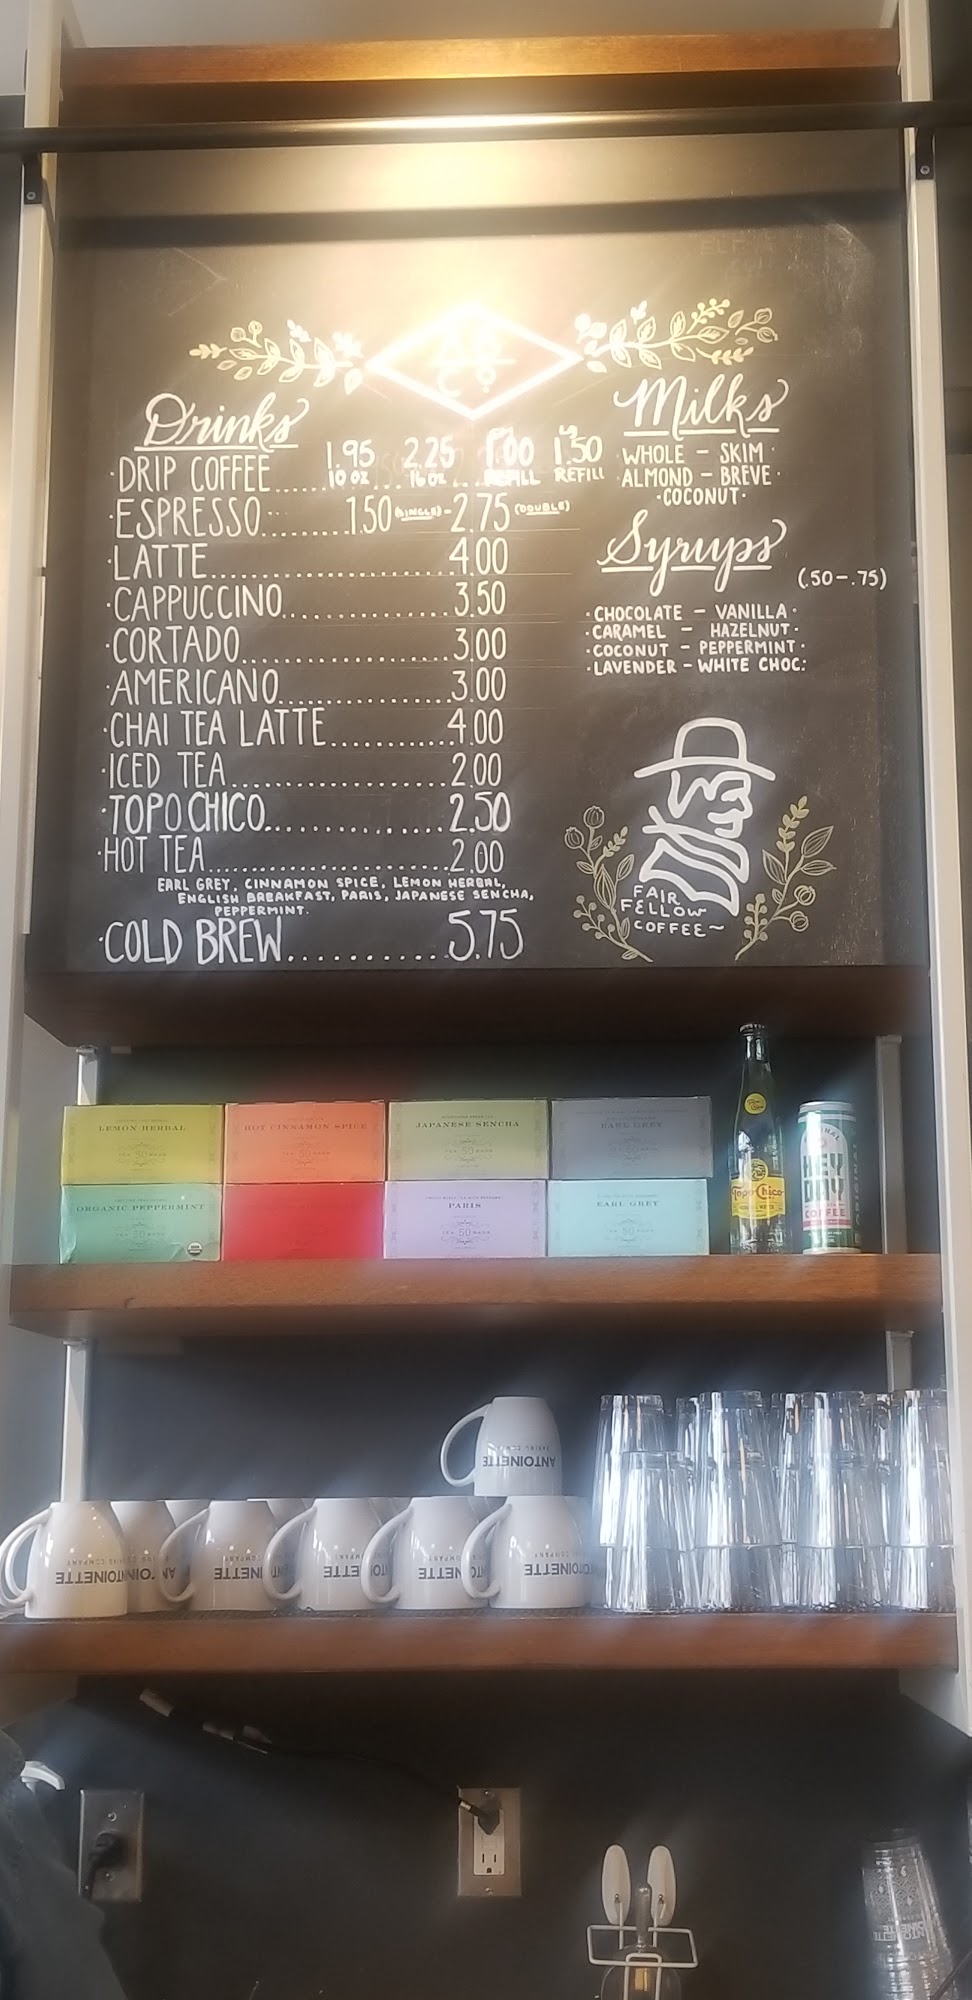 Drinks
·DRIP COFFEE.... 1.95 10 OZ 2.25 16 OZ 1.00 REFILL LG 1.50 REFILL
·ESPRESSO........1.50 (SINGLE) - 2.75 (DOUBLE)
·LATTE......................4.00
·CAPPUCCINO................3.50
·CORTADO...................3.00
·AMERICANO.................3.00
·CHAI TEA LATTE............4.00
·ICED TEA...................2.00
·TOPO CHICO...............2.50
·HOT TEA....................2.00
EARL GREY, CINNAMON SPICE, LEMON HERBAL,
ENGLISH BREAKFAST, PARIS, JAPANESE SENCHA,
PEPPERMINT.
·COLD BREW...........5.75
Milks
·WHOLE - SKIM·
·ALMOND - BREVE·
·COCONUT·
Syrups
(.50-.75)
·CHOCOLATE - VANILLA·
·CARAMEL - HAZELNUT·
·COCONUT - PEPPERMINT·
·LAVENDER - WHITE CHOC.·
FAIR
FELLOW
COFFEE~
LEMON HERBAL
TEA 50 BAGS
HOT CINNAMON SPICE
TEA 50 BAGS
JAPANESE SENCHA
TEA 50 BAGS
EARL GREY
TEA 50 BAGS
ORGANIC PEPPERMINT
TEA 50 BAGS
PARIS
TEA 50 BAGS
EARL GREY
TEA 50 BAGS
Topo Chico
ORIGINAL
HEY
DAY
COFFEE
ANTOINETTE
BAKING COMPANY
ANTOINETTE
BAKING COMPANY
ANTOINETTE
ANTOINETTE
ANTOINETTE
ANTOINETTE
ANTOINETTE